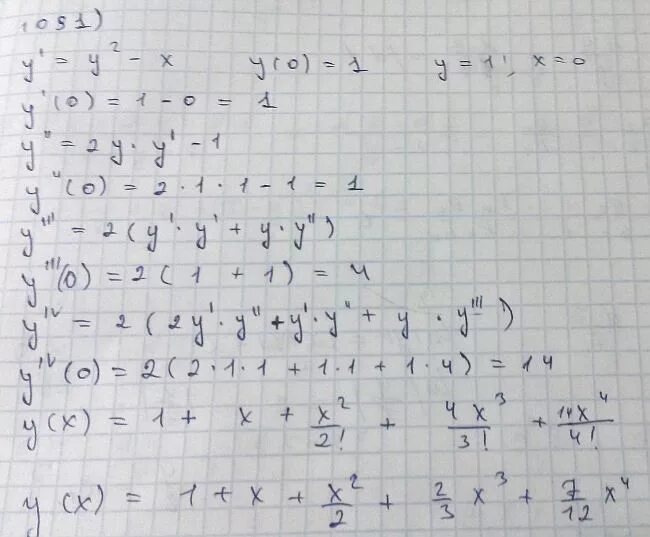 1091)
y' = y² - x y(0) = 1 y = 1; x = 0
y'(0) = 1 - 0 = 1
y'' = 2y · y' - 1
y''(0) = 2 · 1 · 1 - 1 = 1
y''' = 2(y' · y' + y · y'')
y'''(0) = 2(1 + 1) = 4
y^IV = 2(2y' · y'' + y' · y'' + y · y''')
y^IV(0) = 2(2·1·1 + 1·1 + 1·4) = 14
y(x) = 1 + x + x²/2! + 4x³/3! + 14x⁴/4!
y(x) = 1 + x + x²/2 + 2/3 x³ + 7/12 x⁴